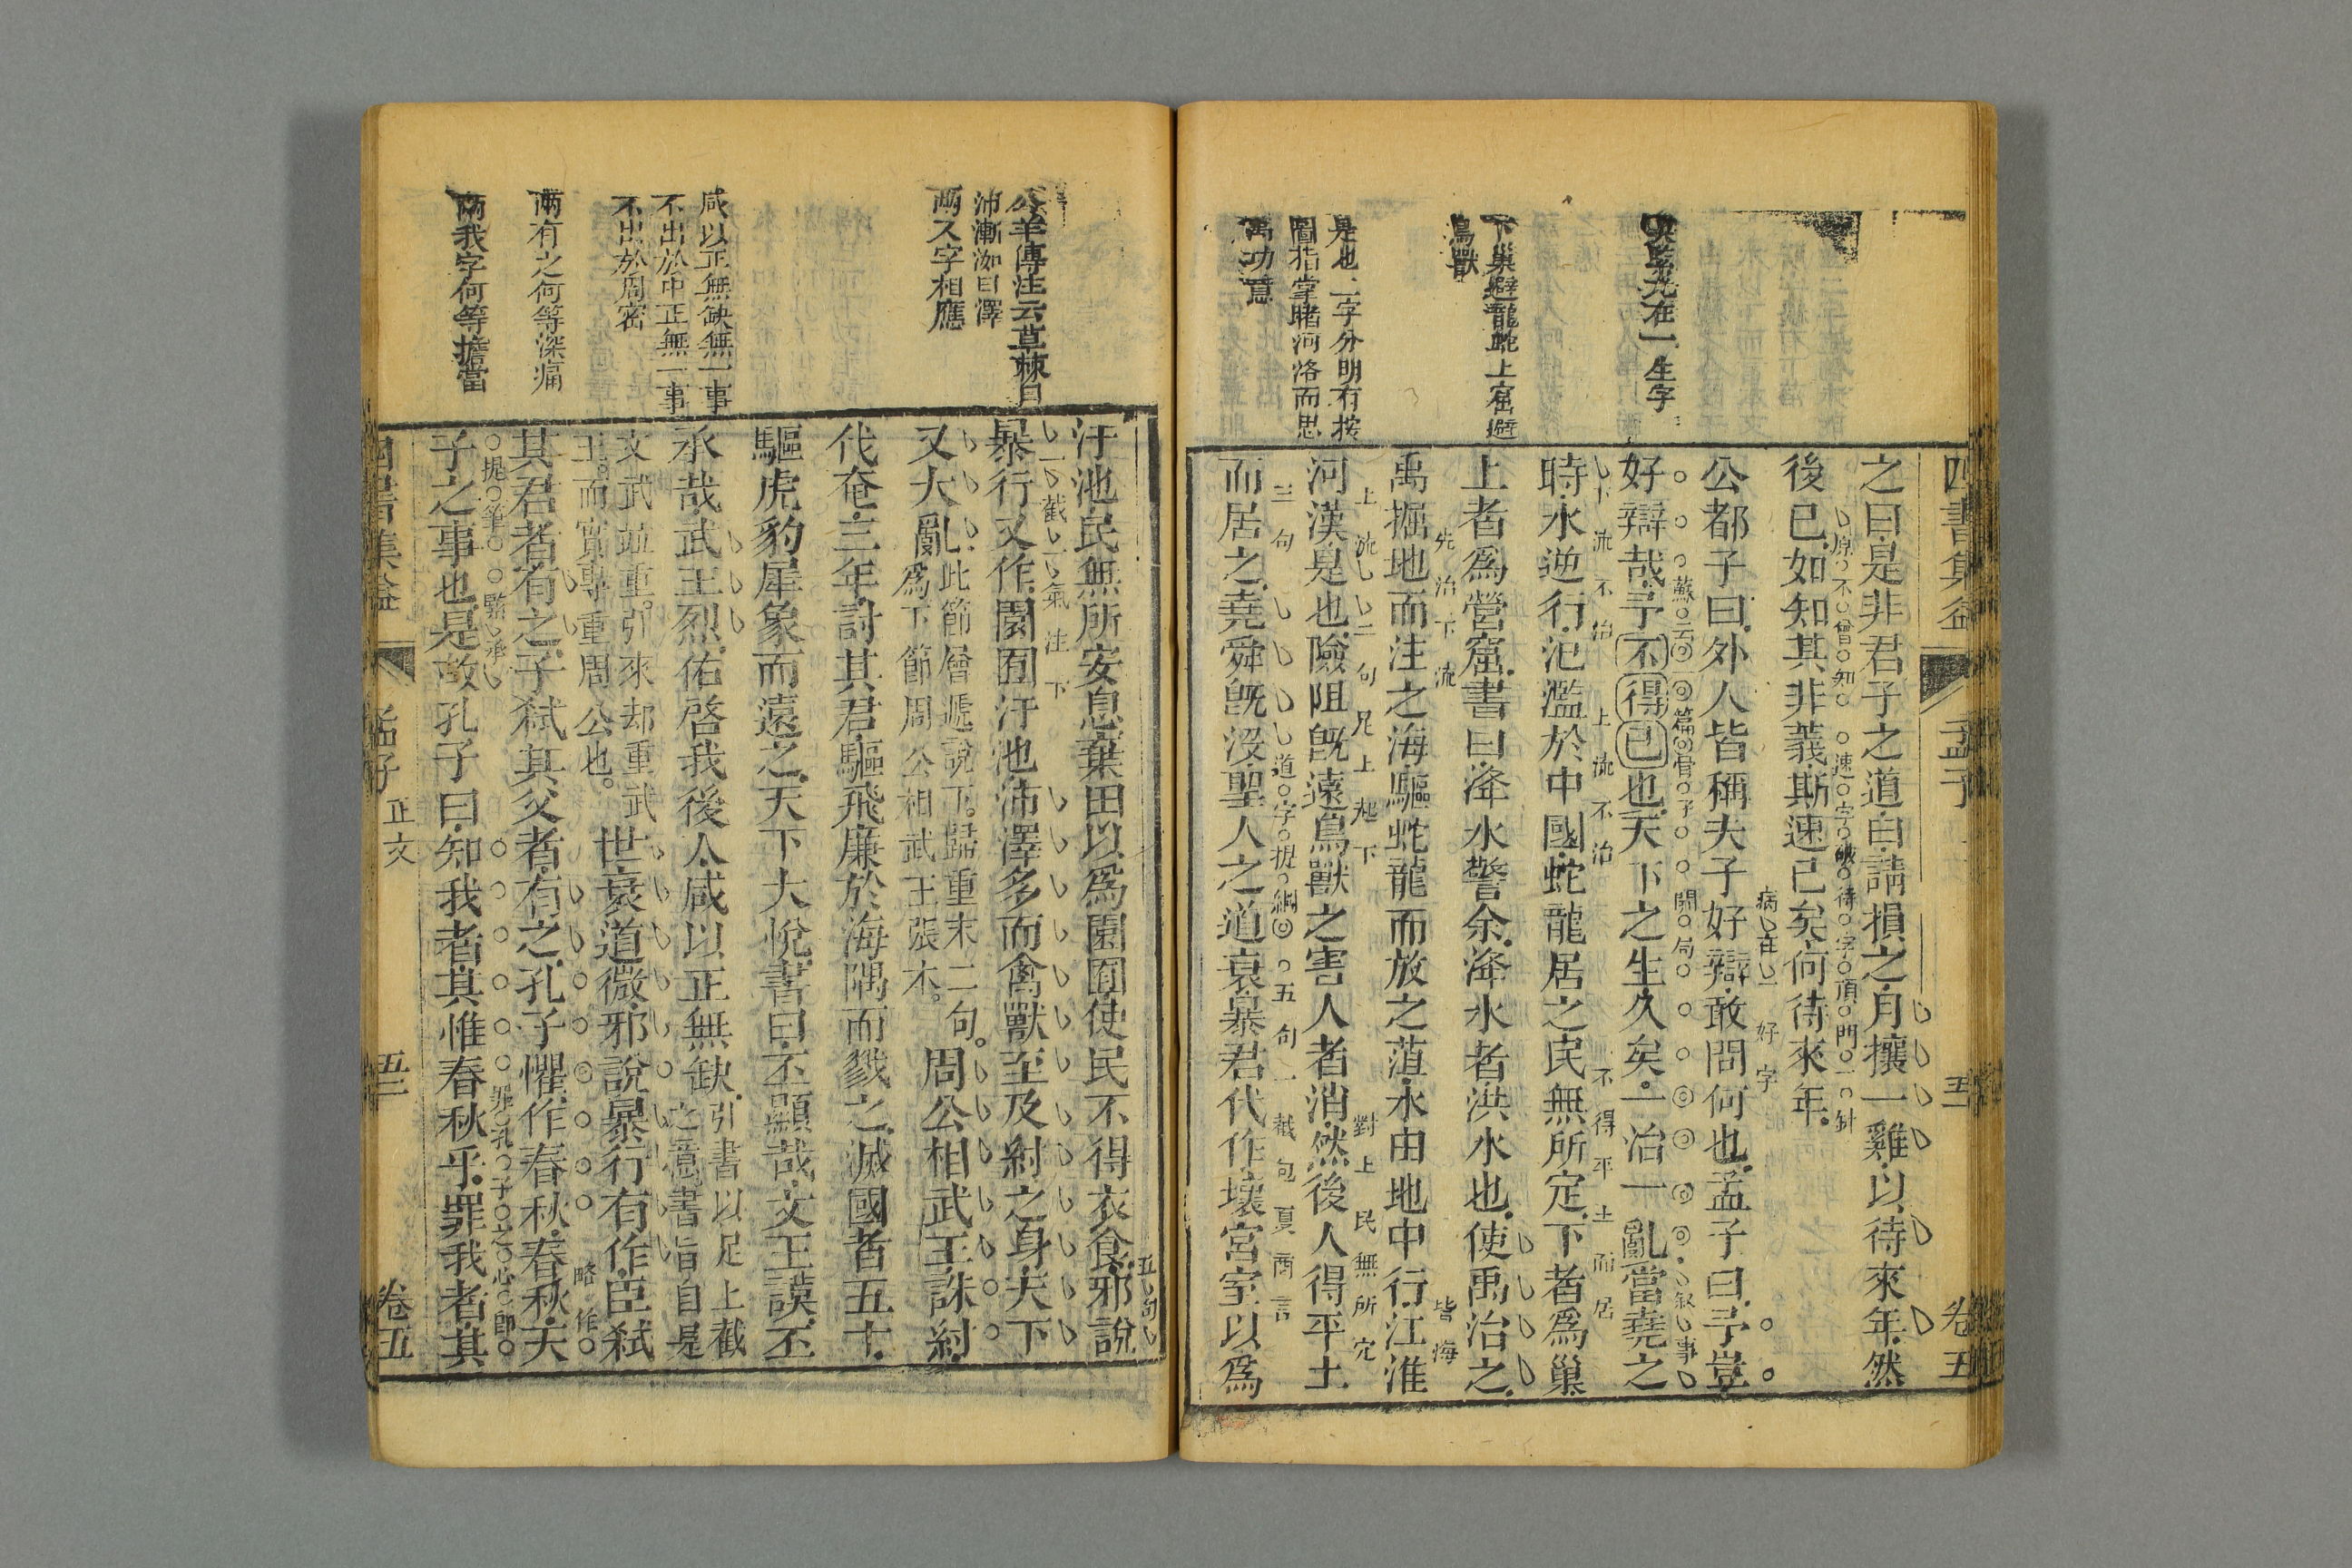 四書集益
孟子
五一
卷五
是也二字分明有按
圖指掌睹河洛而思
禹功意
下巢避龍蛇上窟避
鳥獸
之曰是非君子之道曰請損之月攘一雞以待來年然
原不曾知 速字破待字頂門一針
後已如知其非義斯速已矣何待來年
病在一好字
公都子曰外人皆稱夫子好辯敢問何也孟子曰予豈
蘇云 篇骨子 關局 敘事
好辯哉予不得已也天下之生久矣一治一亂當堯之
下流不治 上流不治 不得平土而居
時水逆行氾濫於中國蛇龍居之民無所定下者爲巢
上者爲營窟書曰洚水警余洚水者洪水也使禹治之
先治下流 皆海
禹掘地而注之海驅蛇龍而放之菹水由地中行江淮
上流 二句足上起下 對上民無所定
河漢是也險阻旣遠鳥獸之害人者消然後人得平土
三句 道字提綱 五句一截句夏商言
而居之堯舜旣沒聖人之道衰暴君代作壞宮室以爲
公羊傳注云草棘曰
沛漸洳曰澤
兩又字相應
咸以正無缺無一事
不出於中正無一事
不出於周密
兩有之何等深痛
兩我字何等擔當
五句
汙池民無所安息棄田以爲園囿使民不得衣食邪說
一截一氣注下
暴行又作園囿汙池沛澤多而禽獸至及紂之身天下
又大亂此節層遞說下歸重末二句
爲下節周公相武王張本
周公相武王誅紂
代奄三年討其君驅飛廉於海隅而戮之滅國者五十
驅虎豹犀象而遠之天下大悅書曰丕顯哉文王謨丕
承哉武王烈佑啓我後人咸以正無缺引書以足上截
之意書旨自是
文武並重引來却重武
王而實專重周公也
世衰道微邪說暴行有作臣弒
略作
其君者有之子弒其父者有之孔子懼作春秋春秋天
提筆 緊承 罪孔子之心卽
子之事也是故孔子曰知我者其惟春秋乎罪我者其
四書集益
孟子 正文
五二
卷五